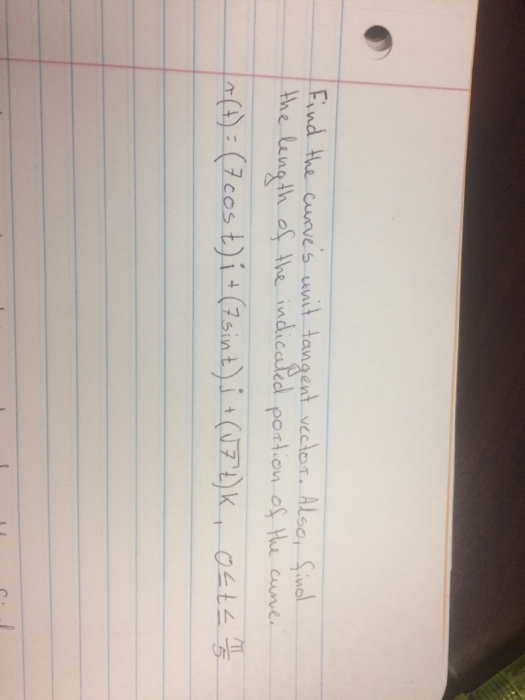 Find the curve's unit tangent vector. Also, find
the length of the indicated portion of the curve.
r(t) = (7cos t)i + (7sint)j + (√7 t)k, 0≤t≤ π/5